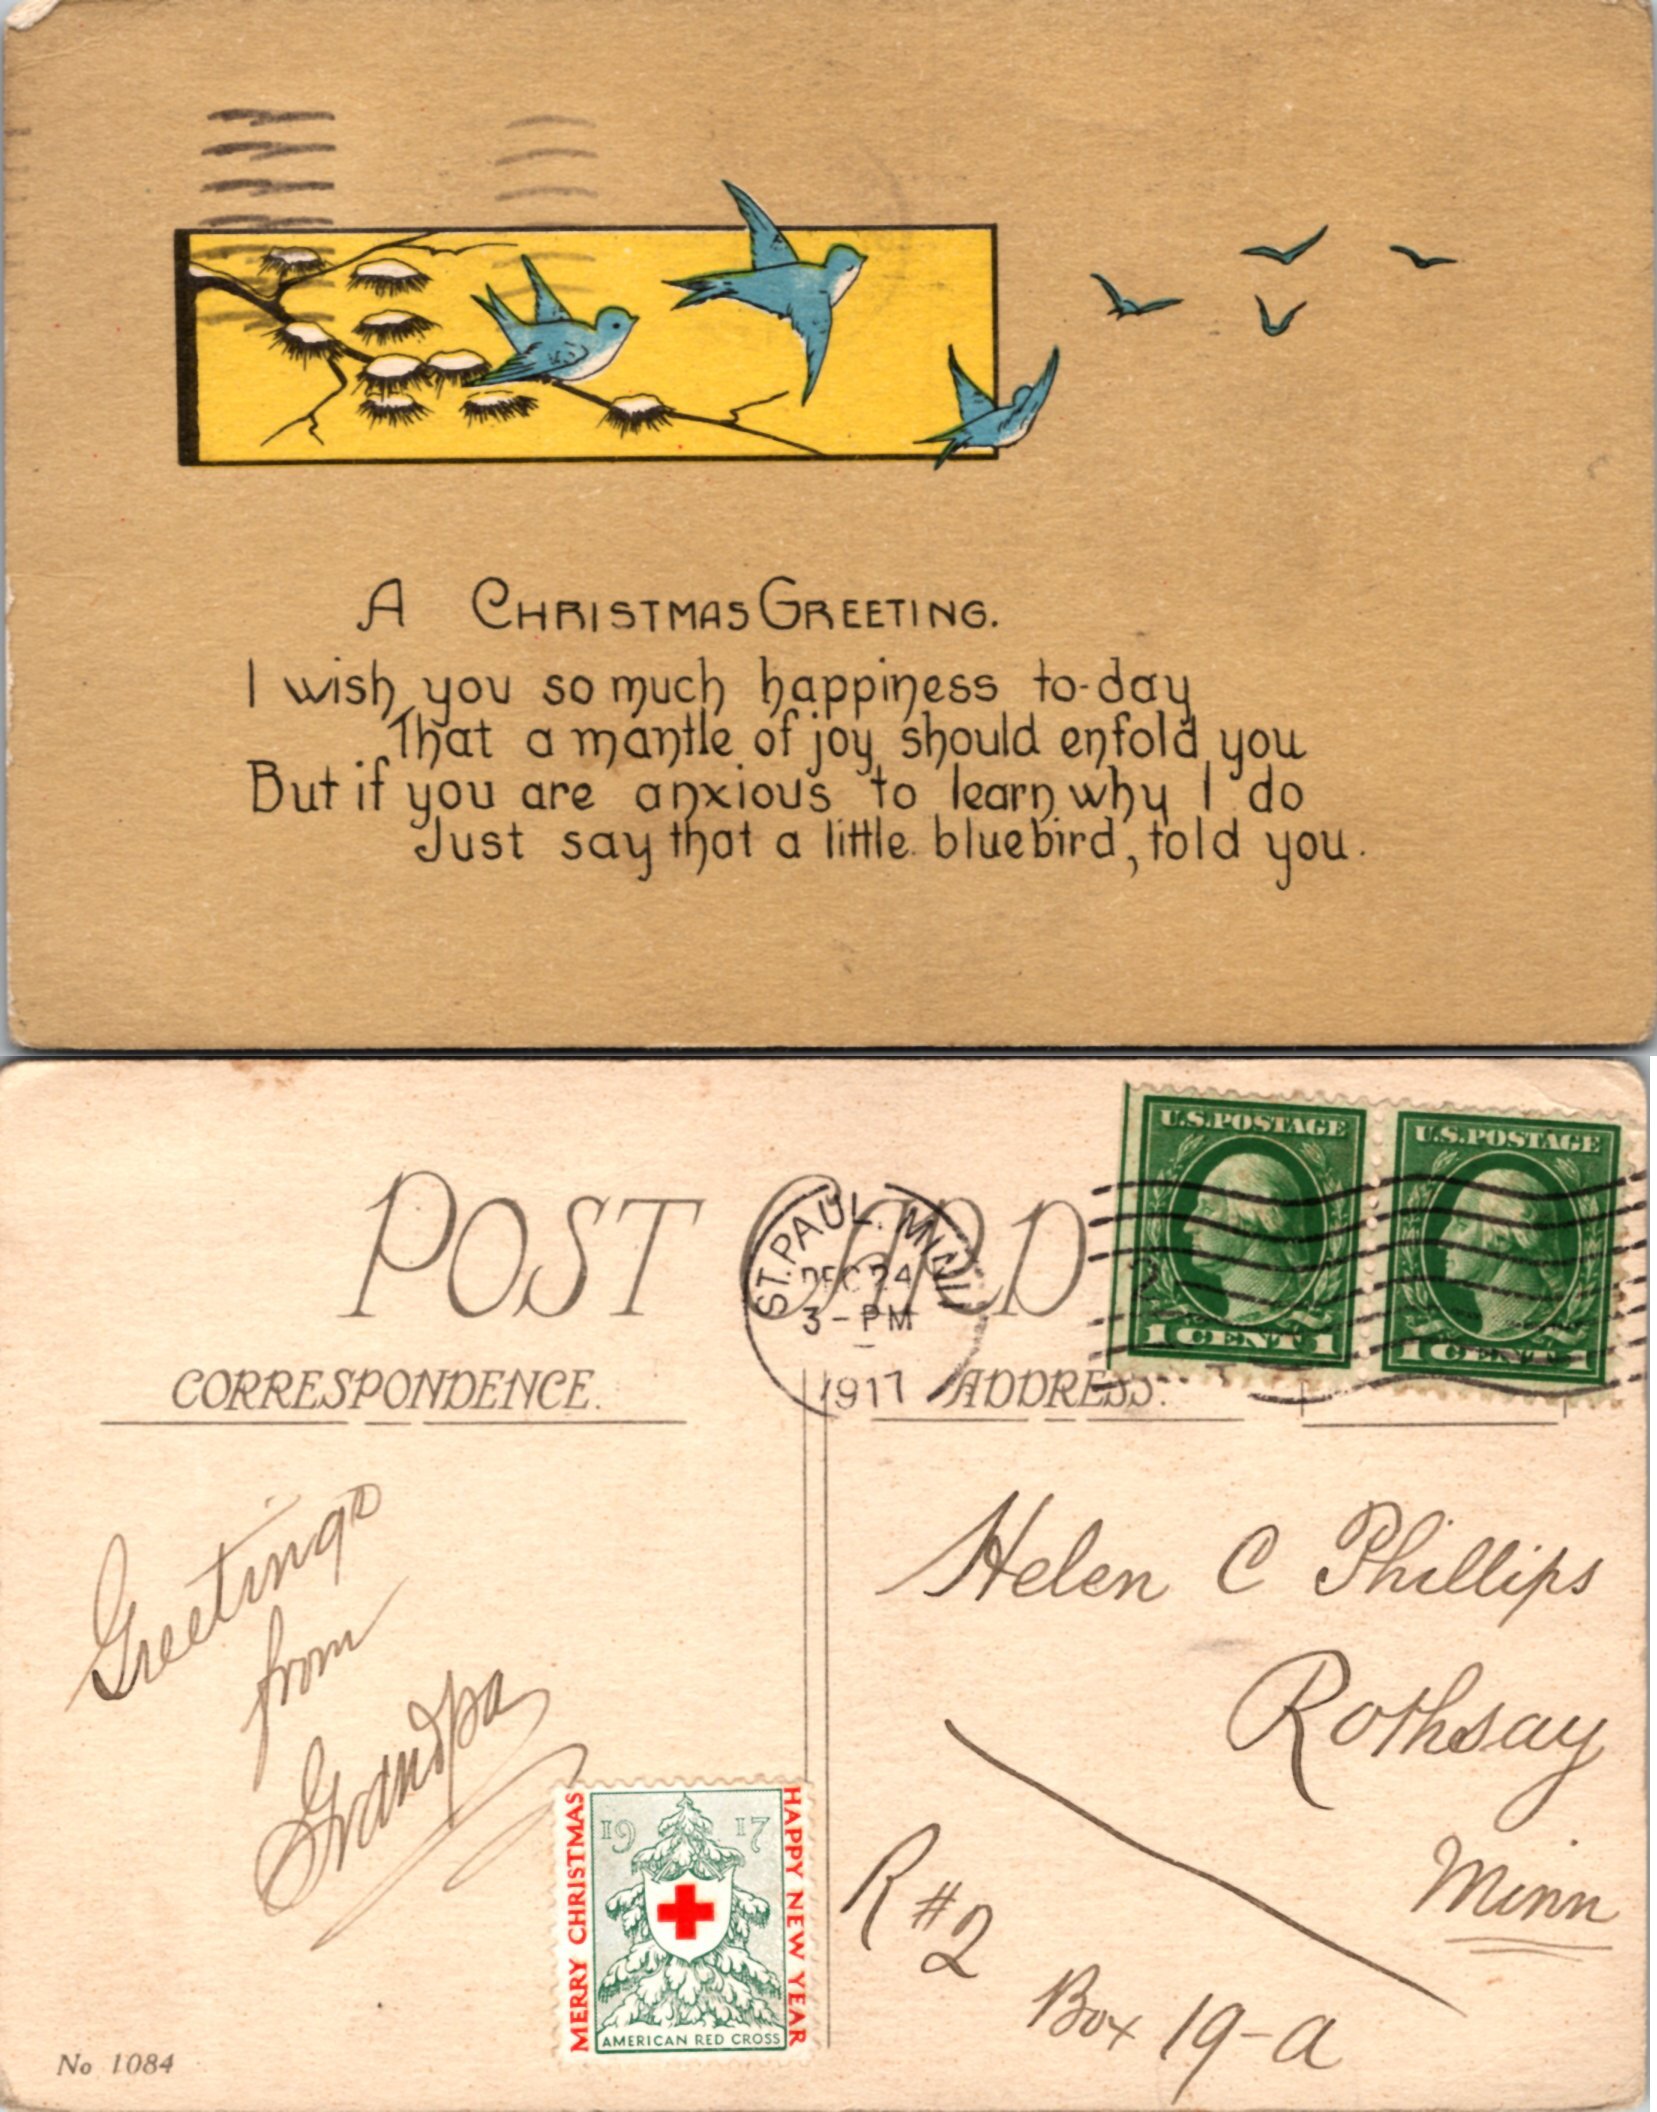 A CHRISTMAS GREETING.
I wish you so much happiness to-day
That a mantle of joy should enfold you
But if you are anxious to learn why I do
Just say that a little bluebird, told you.
POST CARD
ST. PAUL, MINN
DEC 24
3-PM
1917
U.S. POSTAGE
1 CENT 1
U.S. POSTAGE
1 CENT 1
CORRESPONDENCE.
ADDRESS.
Greetings
from
Grandpa
Helen C Phillips
Rothsay
Minn
R #2
Box 19-a
MERRY CHRISTMAS
19 17
HAPPY NEW YEAR
AMERICAN RED CROSS
No 1084